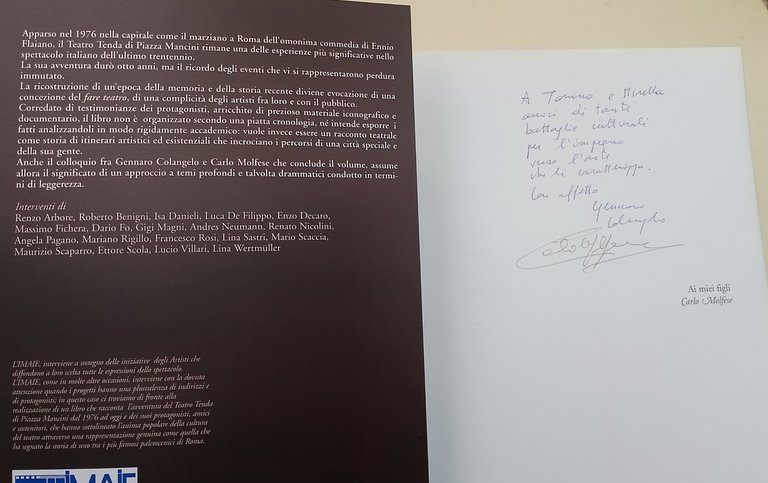 Apparso nel 1976 nella capitale come il marziano a Roma dell'omonima commedia di Ennio
Flaiano, il Teatro Tenda di Piazza Mancini rimane una delle esperienze più significative nello
spettacolo italiano dell'ultimo trentennio.
La sua avventura durò otto anni, ma il ricordo degli eventi che vi si rappresentarono perdura
immutato.
La ricostruzione di un'epoca della memoria e della storia recente diviene evocazione di una
concezione del fare teatro, di una complicità degli artisti fra loro e con il pubblico.
Corredato di testimonianze dei protagonisti, arricchito di prezioso materiale iconografico e
documentario, il libro non è organizzato secondo una piatta cronologia, né intende esporre i
fatti analizzandoli in modo rigidamente accademico: vuole invece essere un racconto teatrale
come storia di itinerari artistici ed esistenziali che incrociano i percorsi di una città speciale e
della sua gente.
Anche il colloquio fra Gennaro Colangelo e Carlo Molfese che conclude il volume, assume
allora il significato di un approccio a temi profondi e talvolta drammatici condotto in termi-
ni di leggerezza.
Interventi di
Renzo Arbore, Roberto Benigni, Isa Danieli, Luca De Filippo, Enzo Decaro,
Massimo Fichera, Dario Fo, Gigi Magni, Andres Neumann, Renato Nicolini,
Angela Pagano, Mariano Rigillo, Francesco Rosi, Lina Sastri, Mario Scaccia,
Maurizio Scaparro, Ettore Scola, Lucio Villari, Lina Wertmüller
L'IMAIE, interviene a sostegno delle iniziative degli Artisti che
diffondono a loro scelta tutte le espressioni dello spettacolo.
L'IMAIE, come in molte altre occasioni, interviene con la dovuta
attenzione quando i progetti hanno una plusvalenza di indirizzi e
di protagonisti; in questo caso ci troviamo di fronte alla
realizzazione di un libro che racconta l'avventura del Teatro Tenda
di Piazza Mancini dal 1976 ad oggi e dei suoi protagonisti, amici
e sostenitori, che hanno sottolineato l'anima popolare della cultura
del teatro attraverso una rappresentazione genuina come quella che
ha segnato la storia di uno tra i più famosi palcoscenici di Roma.
IMAIE
A Tonino e Mirella
amici di tante
battaglie culturali
per l'impegno
verso l'arte
che li caratterizza.
Con affetto
Gennaro
Colangelo
Ai miei figli
Carlo Molfese